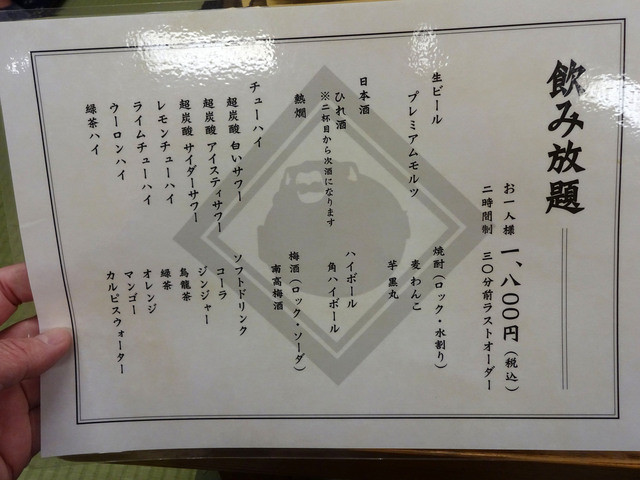 飲み放題
お一人様 一、八〇〇円（税込）
二時間制 三〇分前ラストオーダー
生ビール
プレミアムモルツ
日本酒
ひれ酒
※二杯目から次酒になります
熱燗
チューハイ
超炭酸 白いサワー
超炭酸 アイスティサワー
超炭酸 サイダーサワー
レモンチューハイ
ライムチューハイ
ウーロンハイ
緑茶ハイ
焼酎（ロック・水割り）
麦 わんこ
芋 黒丸
ハイボール
角ハイボール
梅酒（ロック・ソーダ）
南高梅酒
ソフトドリンク
コーラ
ジンジャー
烏龍茶
緑茶
オレンジ
マンゴー
カルピスウォーター